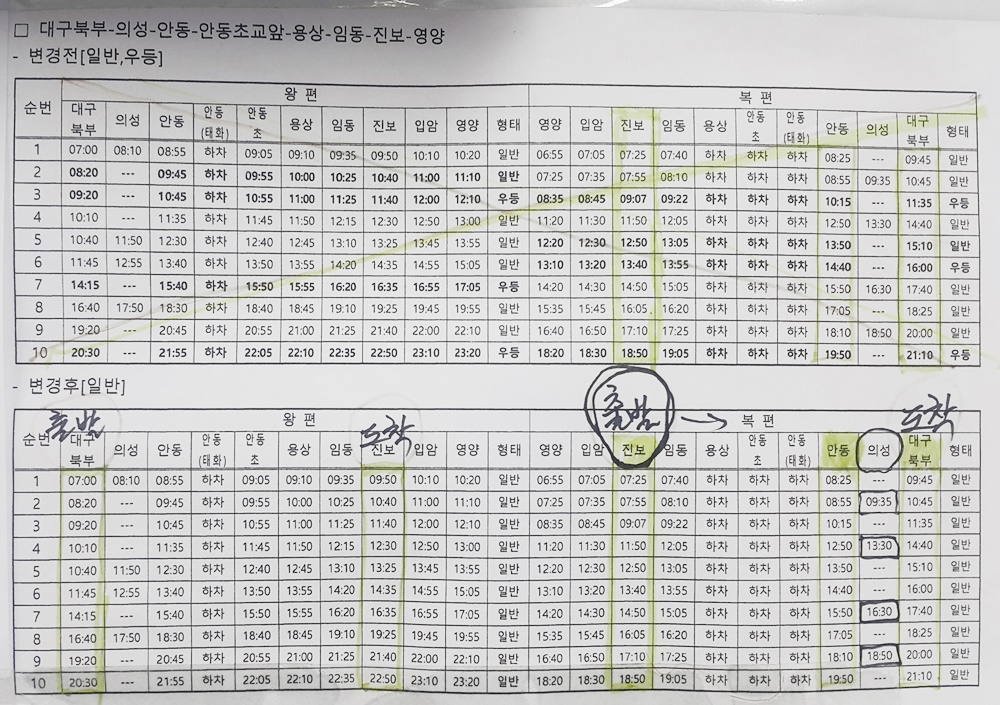 □ 대구북부-의성-안동-안동초교앞-용상-임동-진보-영양
- 변경전[일반,우등]
순번 왕 편 복 편
대구북부 의성 안동 안동(태화) 안동초 용상 임동 진보 입암 영양 형태 영양 입암 진보 임동 용상 안동초 안동(태화) 안동 의성 대구북부 형태
1 07:00 08:10 08:55 하차 09:05 09:10 09:35 09:50 10:10 10:20 일반 06:55 07:05 07:25 07:40 하차 하차 하차 08:25 --- 09:45 일반
2 08:20 --- 09:45 하차 09:55 10:00 10:25 10:40 11:00 11:10 일반 07:25 07:35 07:55 08:10 하차 하차 하차 08:55 09:35 10:45 일반
3 09:20 --- 10:45 하차 10:55 11:00 11:25 11:40 12:00 12:10 우등 08:35 08:45 09:07 09:22 하차 하차 하차 10:15 --- 11:35 우등
4 10:10 --- 11:35 하차 11:45 11:50 12:15 12:30 12:50 13:00 일반 11:20 11:30 11:50 12:05 하차 하차 하차 12:50 13:30 14:40 일반
5 10:40 11:50 12:30 하차 12:40 12:45 13:10 13:25 13:45 13:55 일반 12:20 12:30 12:50 13:05 하차 하차 하차 13:50 --- 15:10 일반
6 11:45 12:55 13:40 하차 13:50 13:55 14:20 14:35 14:55 15:05 일반 13:10 13:20 13:40 13:55 하차 하차 하차 14:40 --- 16:00 우등
7 14:15 --- 15:40 하차 15:50 15:55 16:20 16:35 16:55 17:05 우등 14:20 14:30 14:50 15:05 하차 하차 하차 15:50 16:30 17:40 일반
8 16:40 17:50 18:30 하차 18:40 18:45 19:10 19:25 19:45 19:55 일반 15:35 15:45 16:05 16:20 하차 하차 하차 17:05 --- 18:25 일반
9 19:20 --- 20:45 하차 20:55 21:00 21:25 21:40 22:00 22:10 일반 16:40 16:50 17:10 17:25 하차 하차 하차 18:10 18:50 20:00 일반
10 20:30 --- 21:55 하차 22:05 22:10 22:35 22:50 23:10 23:20 우등 18:20 18:30 18:50 19:05 하차 하차 하차 19:50 --- 21:10 우등
- 변경후[일반]
출발 도착 출발 → 도착
순번 왕 편 복 편
대구북부 의성 안동 안동(태화) 안동초 용상 임동 진보 입암 영양 형태 영양 입암 진보 임동 용상 안동초 안동(태화) 안동 의성 대구북부 형태
1 07:00 08:10 08:55 하차 09:05 09:10 09:35 09:50 10:10 10:20 일반 06:55 07:05 07:25 07:40 하차 하차 하차 08:25 --- 09:45 일반
2 08:20 --- 09:45 하차 09:55 10:00 10:25 10:40 11:00 11:10 일반 07:25 07:35 07:55 08:10 하차 하차 하차 08:55 09:35 10:45 일반
3 09:20 --- 10:45 하차 10:55 11:00 11:25 11:40 12:00 12:10 일반 08:35 08:45 09:07 09:22 하차 하차 하차 10:15 --- 11:35 일반
4 10:10 --- 11:35 하차 11:45 11:50 12:15 12:30 12:50 13:00 일반 11:20 11:30 11:50 12:05 하차 하차 하차 12:50 13:30 14:40 일반
5 10:40 11:50 12:30 하차 12:40 12:45 13:10 13:25 13:45 13:55 일반 12:20 12:30 12:50 13:05 하차 하차 하차 13:50 --- 15:10 일반
6 11:45 12:55 13:40 하차 13:50 13:55 14:20 14:35 14:55 15:05 일반 13:10 13:20 13:40 13:55 하차 하차 하차 14:40 --- 16:00 일반
7 14:15 --- 15:40 하차 15:50 15:55 16:20 16:35 16:55 17:05 일반 14:20 14:30 14:50 15:05 하차 하차 하차 15:50 16:30 17:40 일반
8 16:40 17:50 18:30 하차 18:40 18:45 19:10 19:25 19:45 19:55 일반 15:35 15:45 16:05 16:20 하차 하차 하차 17:05 --- 18:25 일반
9 19:20 --- 20:45 하차 20:55 21:00 21:25 21:40 22:00 22:10 일반 16:40 16:50 17:10 17:25 하차 하차 하차 18:10 18:50 20:00 일반
10 20:30 --- 21:55 하차 22:05 22:10 22:35 22:50 23:10 23:20 일반 18:20 18:30 18:50 19:05 하차 하차 하차 19:50 --- 21:10 일반